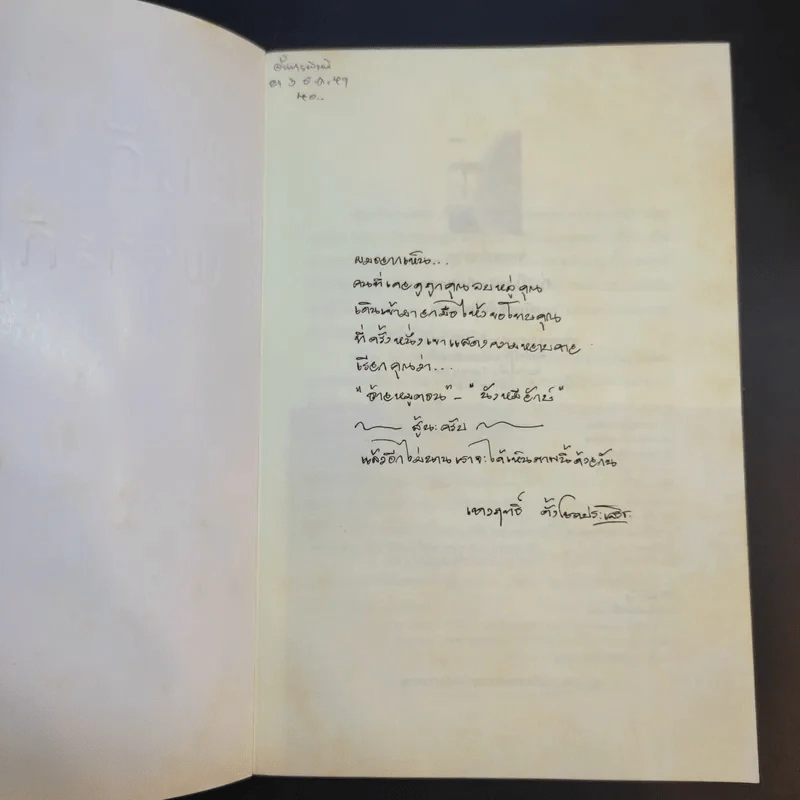 ผมอยากเห็น...
คนที่เคยดูถูกคุณลบหลู่คุณ
เดินเข้ามายกมือไหว้ขอโทษคุณ
ที่ครั้งหนึ่งเขาแสดงความหยาบคาย
เรียกคุณว่า...
"อ้ายหมูตอน" - "นังหมียักษ์"
สู้นะครับ
แล้วอีกไม่นานเราจะได้เห็นภาพนี้ด้วยกัน
ตั้งโชคประเสริฐ